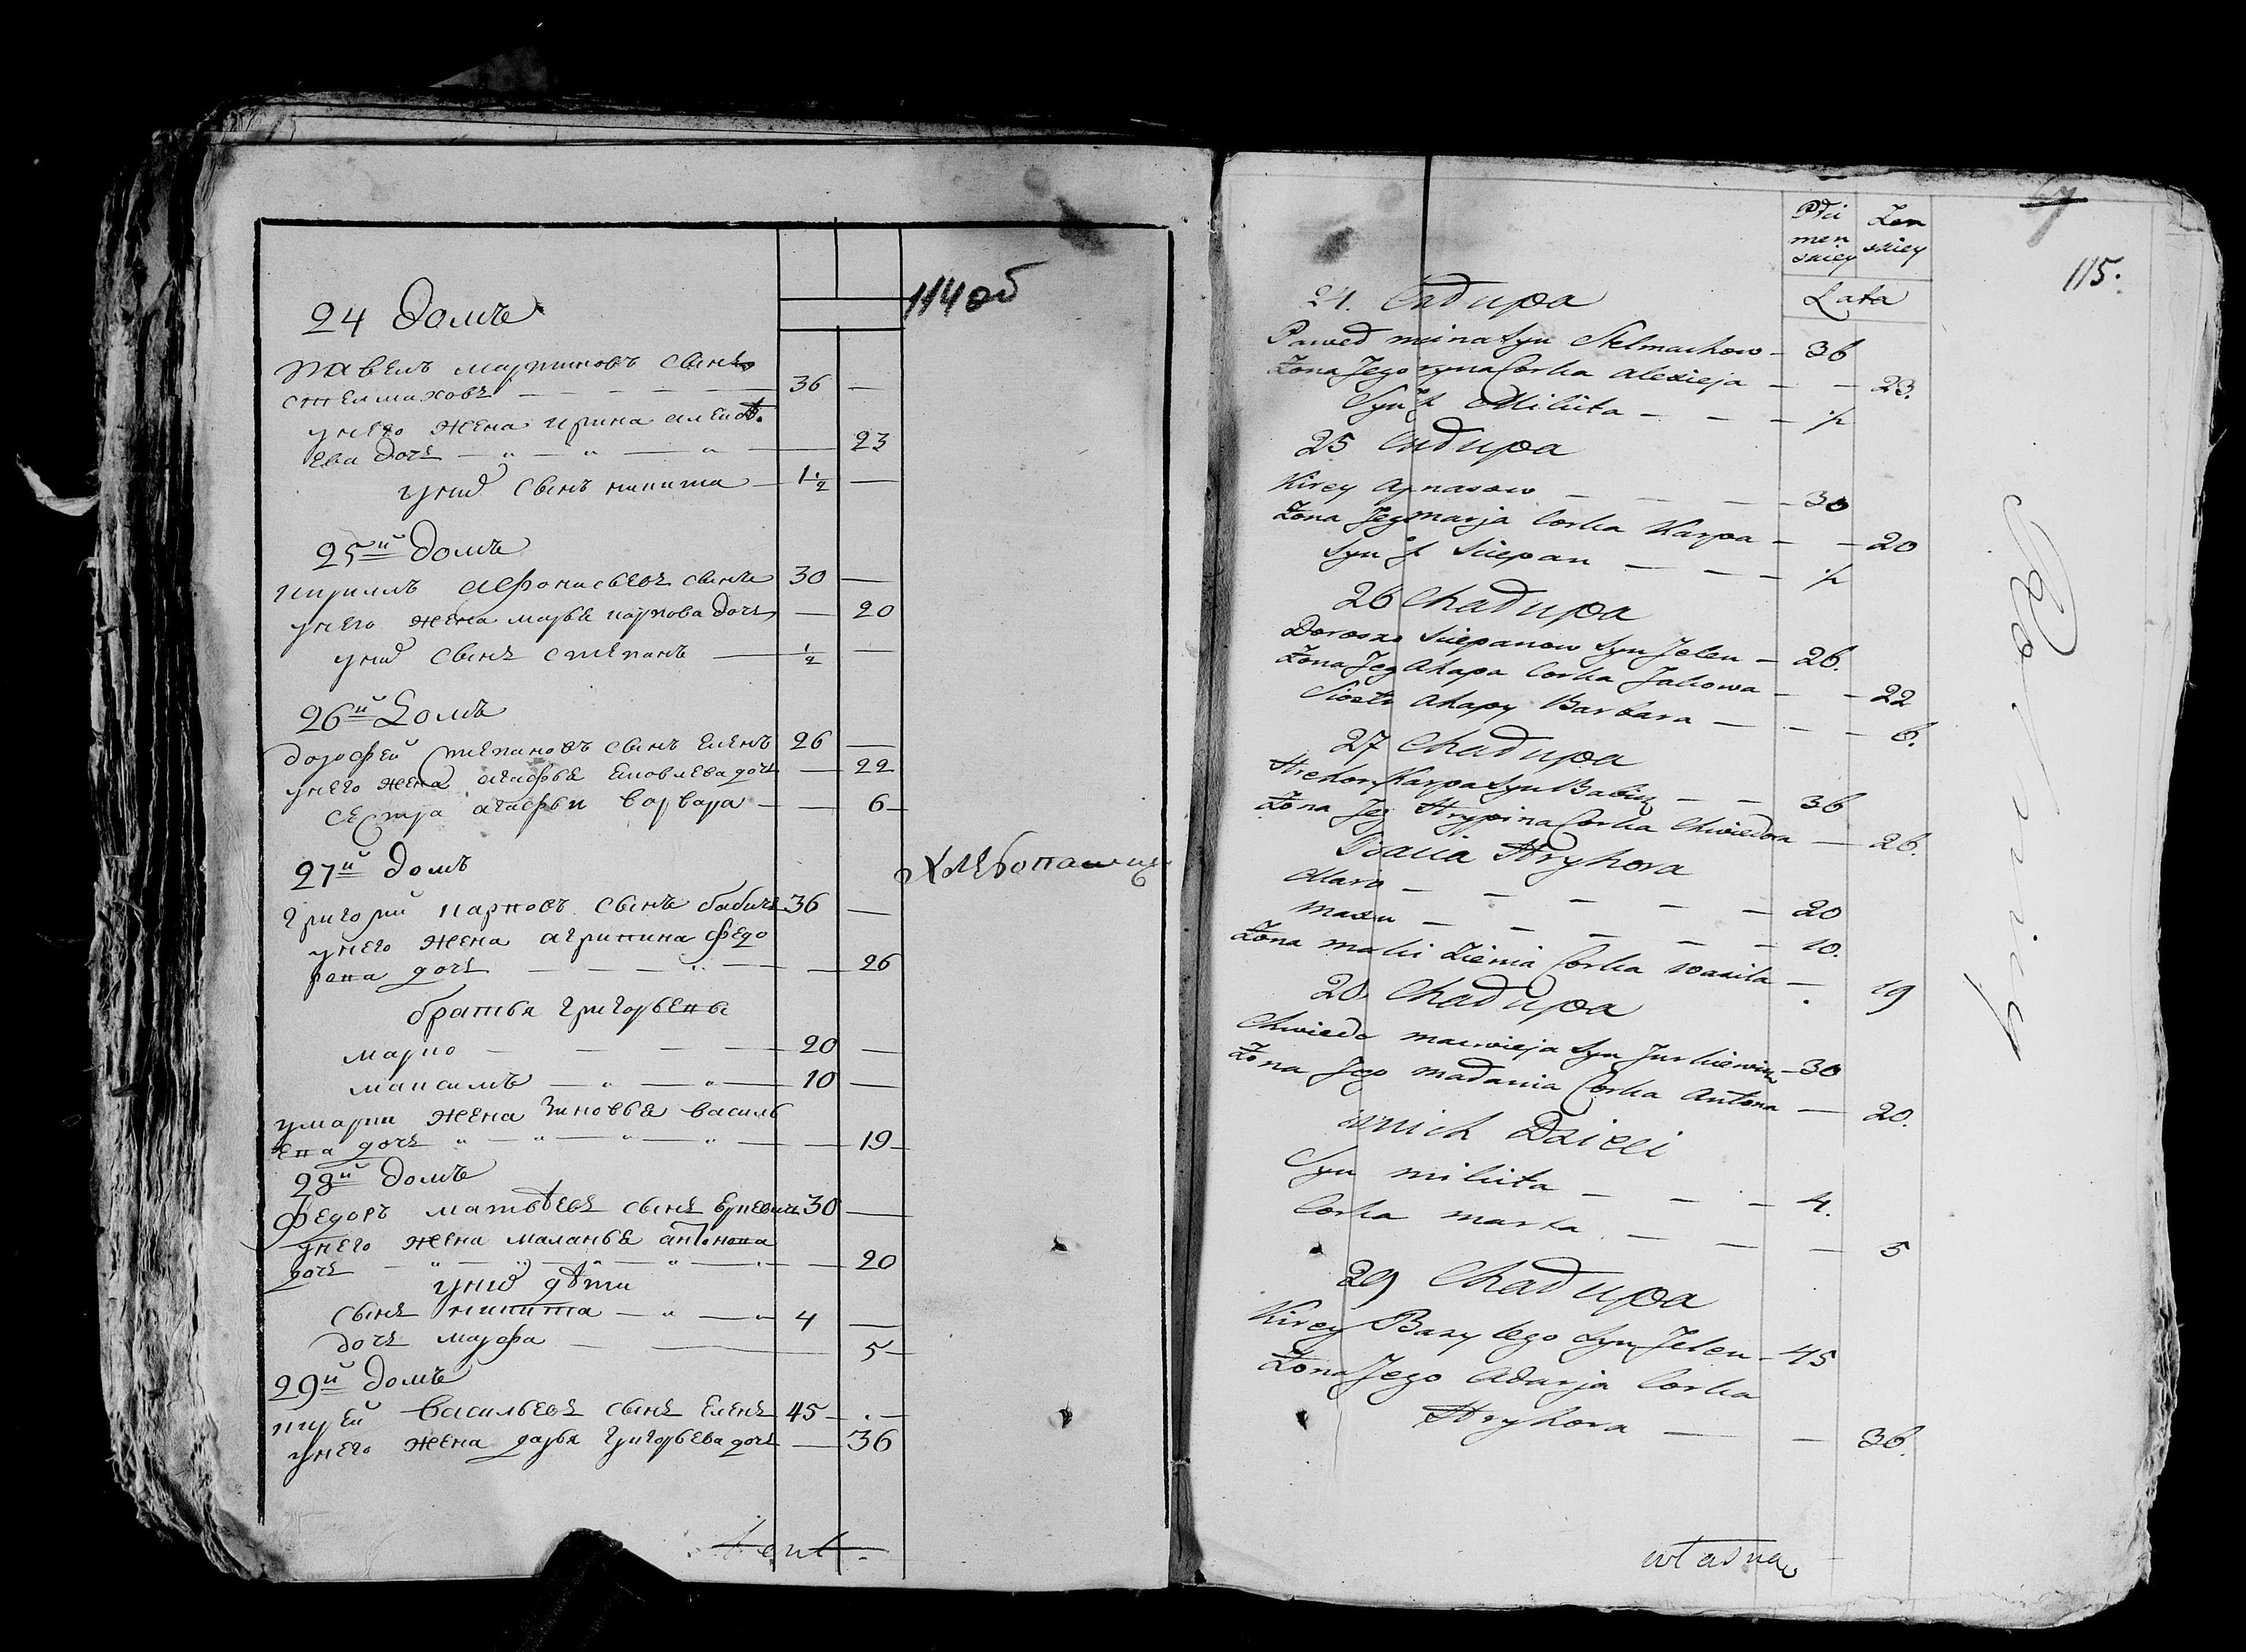 114 об
24 домъ
Павелъ Мартиновъ сынъ
Стелмаховъ — — — 36 —
у него жена Ирина Алексѣ-
ева дочь — „ — „ — „ — 23
у них сынъ Никита — 1 1/2 —
25й домъ
Кириллъ Афонасьевъ сынъ 30 —
у него жена Марья Карпова дочь — 20
у них сынъ Степанъ — 1/2 —
26й домъ
Дорофей Степановъ сынъ Еленъ 26 —
у него жена Агафья Яковлева дочь — 22
сестра Агафьи Варвара — — 6 —
27й домъ
Хлебопашц
Григорий Карповъ сынъ Бабичъ 36 —
у него жена Агрипина Федо
рова дочь — — — „ — — 26
братья Григорьевы
Марко — — — — 20 —
Максимъ — „ — „ — 10 —
у Марки жена Зиновья Василь
ева дочь „ — „ — „ — „ — — 19 —
28й домъ
Федоръ Матвѣевъ сынъ Юркевичъ 30 —
у него жена Маланья Антонова
дочь — „ — „ — „ — „ — „ — 20
у них дѣти
сынъ Никита — „ — „ 4 —
дочь Марфа — — 5 —
29й домъ
Кирей Васильевъ сынъ Еленъ 45 — . —
у него жена Дарья Григорьева дочь — 36
67
115.
Płci Żen
men skiey
skiey
Lata
24. Chałupa
Paweł mina Syn Stelmachow — 36
Żona Jego ryna Corka Alexieja — — 23.
Syn J. Mikita — — — 1/2
25 Chałupa
Kirey Apnasow — — — 30
Żona Jego Marja Corka Karpa — — 20
Syn J. Sciepan — — — 1/2
26 Chałupa
Dorosz Sciepanow Syn Jelen — 26.
Żona Jeg Ahapa Corka Jakowa — — 22
Siostr Ahapy Barbara — — — 6.
27 Chałupa
Hrehor Karpa Syn Babicz — — 36
Żona Jeg Hrypina Corka Chwiedora — 26.
Bracia Hryhora
Mark — — — — — 20
Maxu — — — — — 10.
Żona Marki Zienia Corka Wasila — 19
28 Chałupa
Chwiedo Macwieja Syn Jurkiewicz — 30
Żona Jego Madania Corka Antona — 20.
u nich Dzieci
Syn Mikita — — — 4.
Corka Marta — — — 5
29 Chałupa
Kirey Bazylego Syn Jelen — 45
Żona Jego Adarja Corka
Hryhora — — 36.
własna